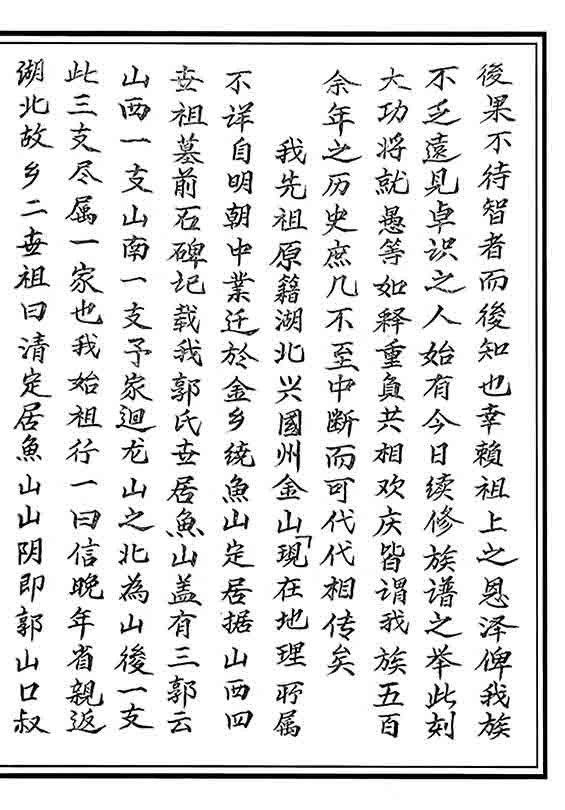 後果不待智者而後知也幸賴祖上之恩泽俾我族
不乏遠見卓识之人始有今日续修族谱之举此刻
大功将就愚等如释重負共相欢庆皆谓我族五百
余年之历史庶几不至中断而可代代相传矣
我先祖原籍湖北兴國州金山「現在地理所属
不详自明朝中業迁於金乡绕魚山定居据山西四
世祖墓前石碑记载我郭氏世居魚山盖有三郭云
山西一支山南一支予家迴龙山之北為山後一支
此三支尽属一家也我始祖行一曰信晚年省親返
湖北故乡二世祖曰清定居魚山山阴即郭山口叔